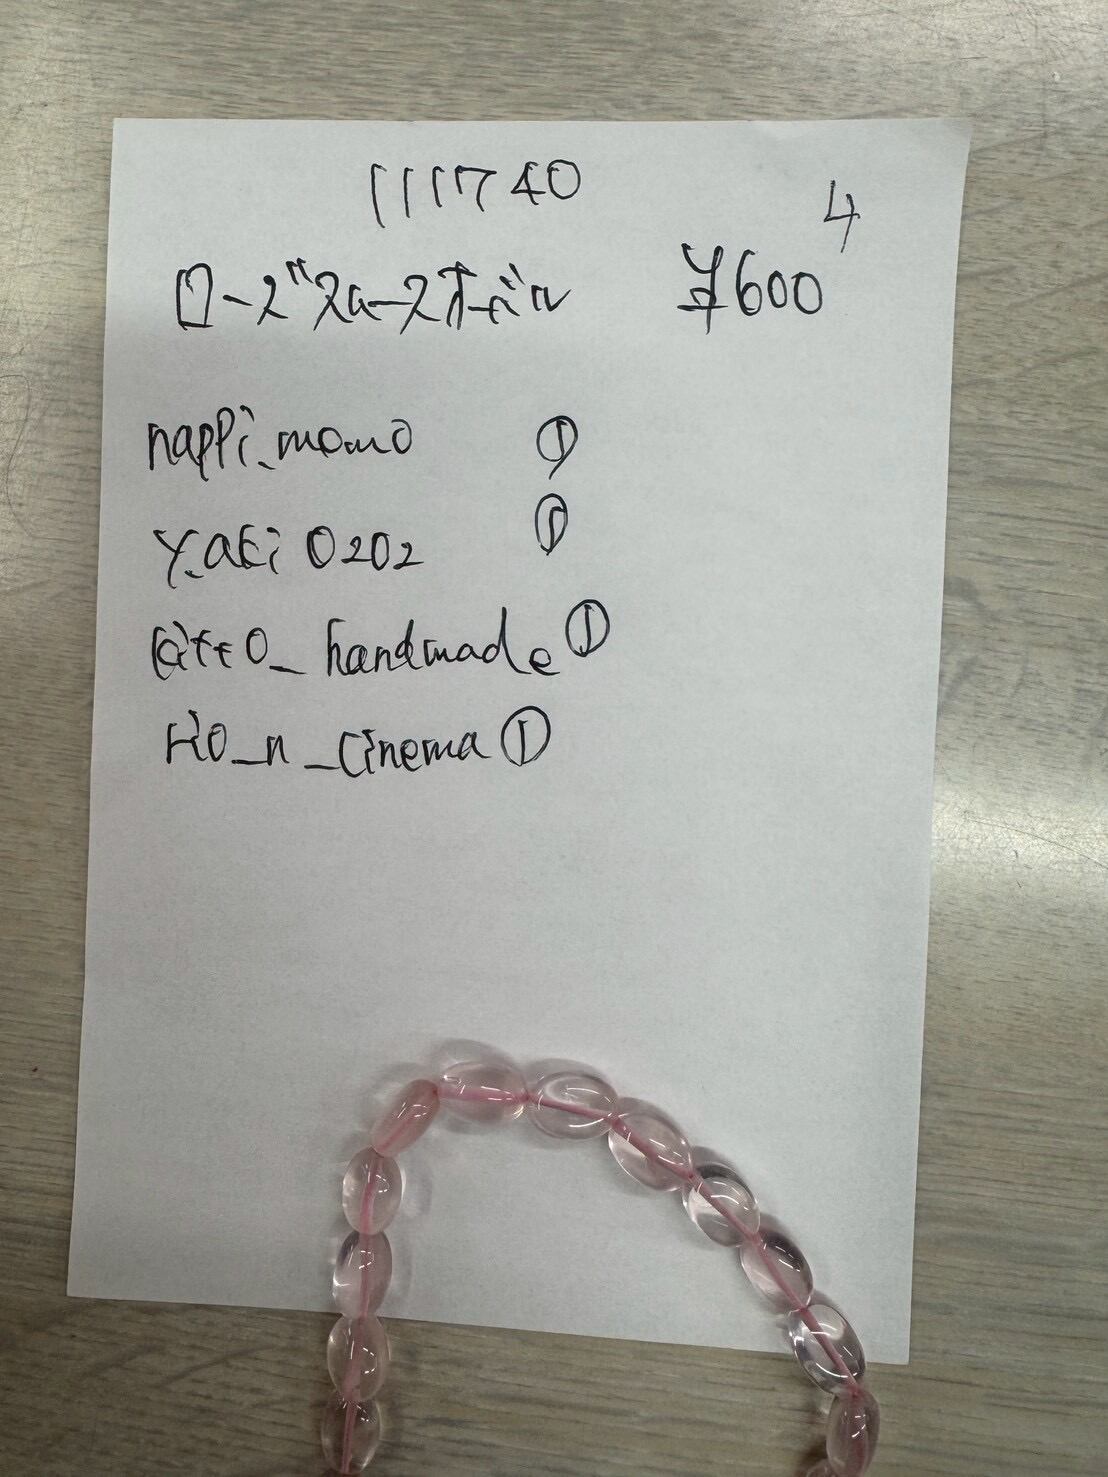 111740
4
ローズスムースオーバル ¥600
nappi_momo ①
y.aki0202 ①
kitto_handmade ①
rio_n_cinema ①